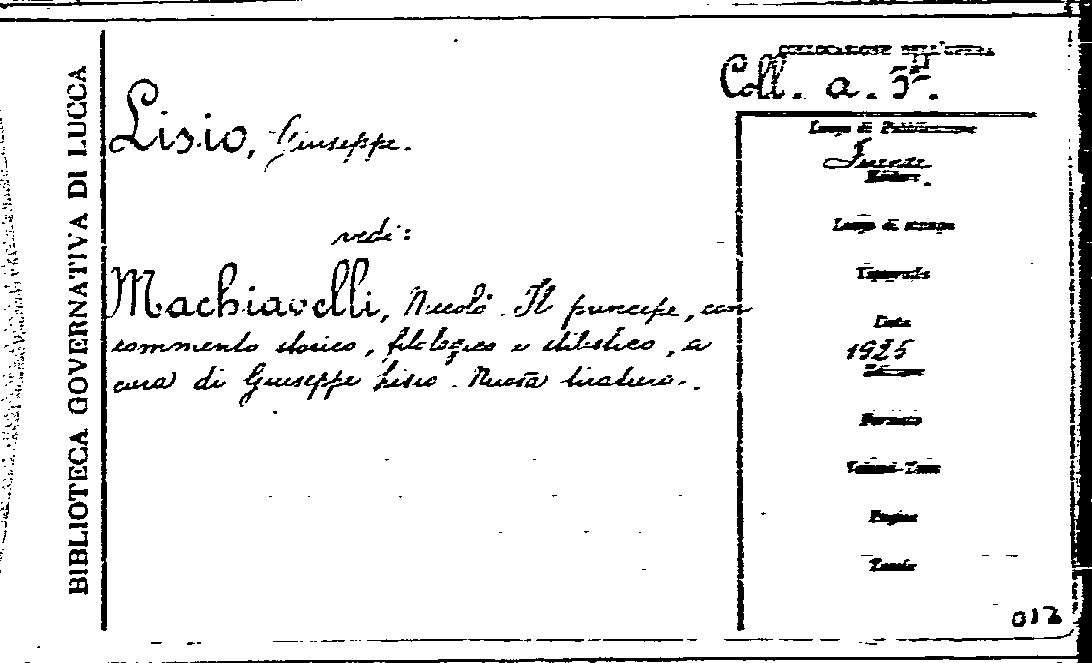 BIBLIOTECA GOVERNATIVA DI LUCCA
COLLOCAZIONE DELL'OPERA
Coll. a. 5
Lisio, Giuseppe.
vedi:
Machiavelli, Niccolò. Il principe, con
commento storico, filologico e stilistico, a
cura di Giuseppe Lisio. Nuova tiratura.
Luogo di Pubblicazione
Firenze
Editore
Luogo di stampa
Tipografia
Data
1925
Formato
Volumi-Tomi
Pagine
Tavole
012